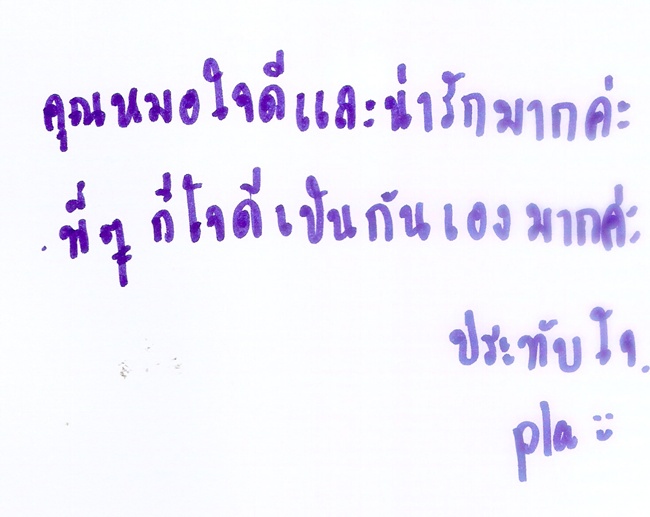 คุณหมอใจดีและน่ารักมากค่ะ
พี่ๆ ก็ใจดีเป็นกันเองมากค่ะ
ประทับใจ.
pla :)